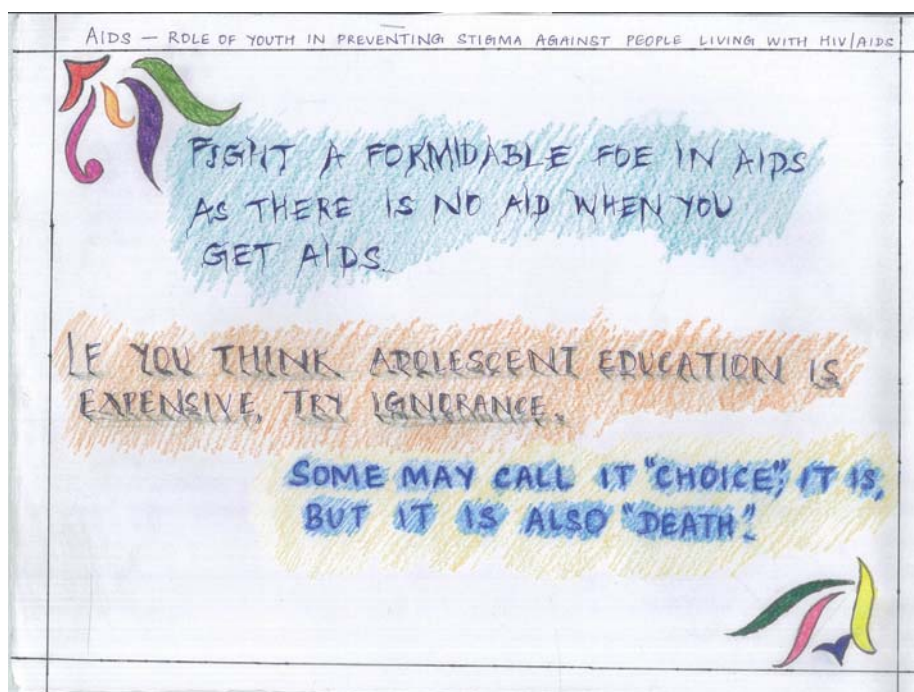 AIDS — ROLE OF YOUTH IN PREVENTING STIGMA AGAINST PEOPLE LIVING WITH HIV/AIDS
FIGHT A FORMIDABLE FOE IN AIDS
AS THERE IS NO AID WHEN YOU
GET AIDS.
IF YOU THINK ADOLESCENT EDUCATION IS
EXPENSIVE, TRY IGNORANCE.
SOME MAY CALL IT "CHOICE"; IT IS,
BUT IT IS ALSO "DEATH".